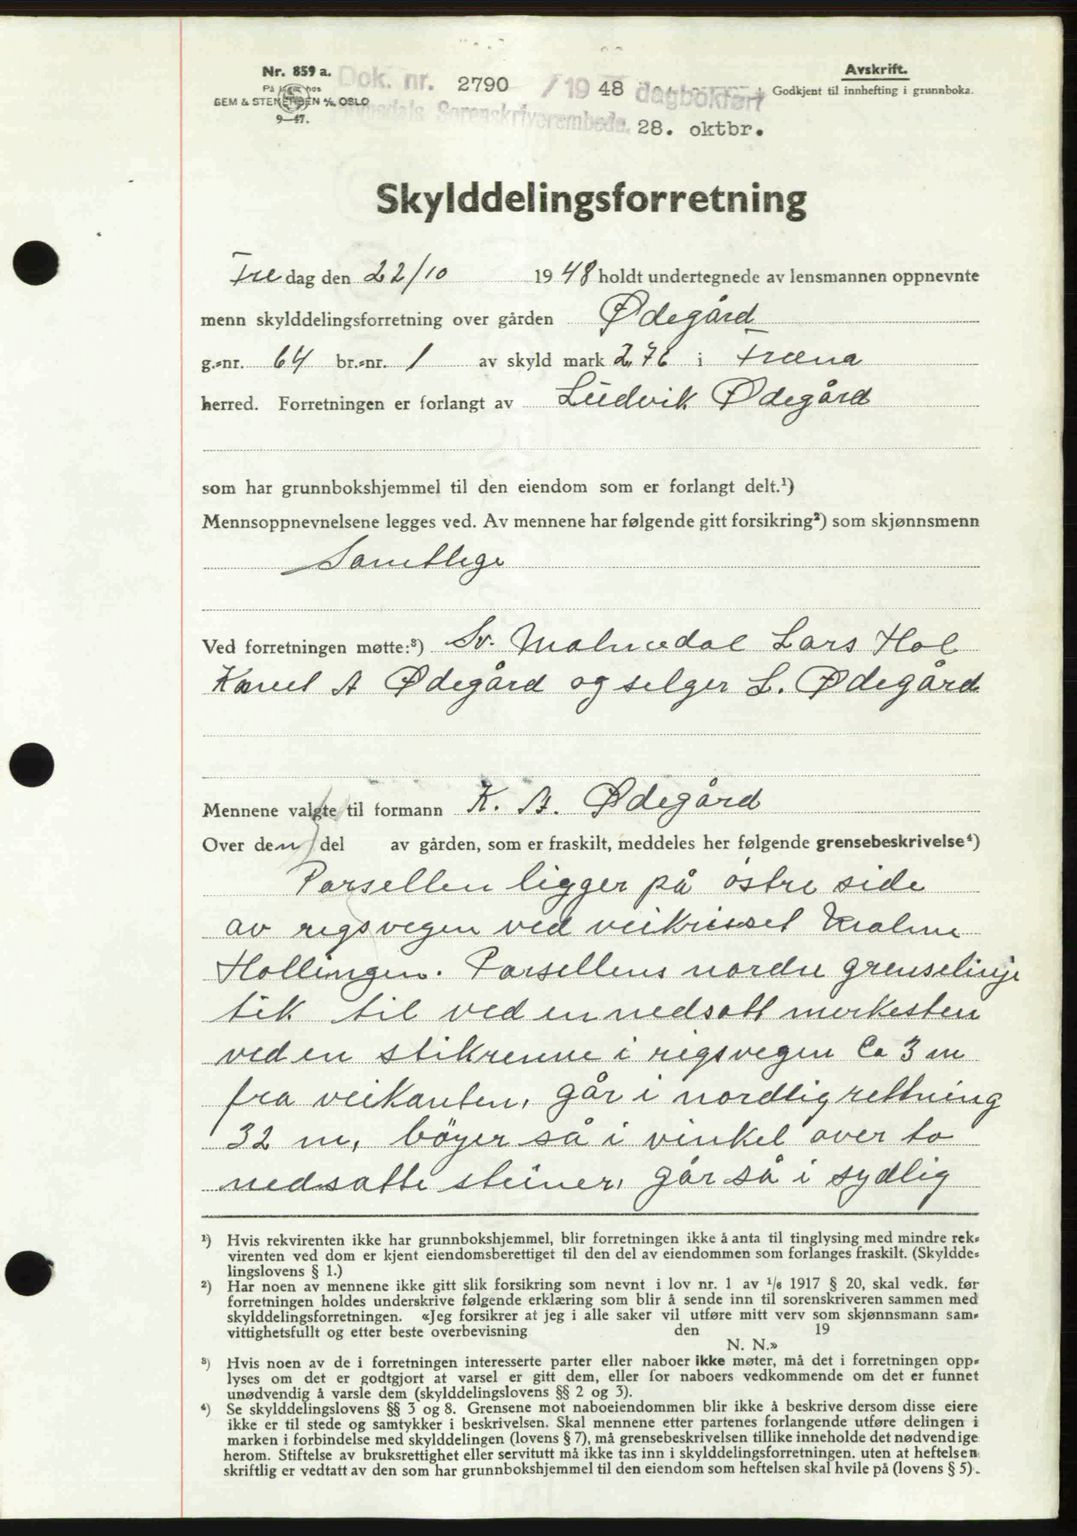 Nr. 859 a.
På lager hos
SEM & STENERSEN A/S, OSLO
9—47.
Dok. nr. 2790 / 19 48 dagbokført
Romsdals Sorenskriverembede. 28. oktbr.
Avskrift.
Godkjent til innhefting i grunnboka.
Skylddelingsforretning
Fredag den 22/10 1948 holdt undertegnede av lensmannen oppnevnte
menn skylddelingsforretning over gården Ødegård
g.-nr. 64 br.-nr. 1 av skyld mark 2,76 i Fræna
herred. Forretningen er forlangt av Ludvik Ødegård
som har grunnbokshjemmel til den eiendom som er forlangt delt.¹)
Mennsoppnevnelsene legges ved. Av mennene har følgende gitt forsikring²) som skjønnsmenn
Samtlige
Ved forretningen møtte:³) Sv. Malmedal Lars Hol
A Ødegård og selger L. Ødegård
Mennene valgte til formann K. A. Ødegård
Over den del av gården, som er fraskilt, meddeles her følgende grensebeskrivelse⁴)
Parsellen ligger på østre side
av rigsvegen ved veikrisset Malme
Hollingen. Parsellens nordre grenselinje
tik til ved en nedsatt merkesten
ved en stikrenne i rigsvegen Ca 3 m
fra veikanten, går i nordlig rettning
32 m, bøyer så i vinkel over to
nedsatte steiner, går så i sydlig
¹) Hvis rekvirenten ikke har grunnbokshjemmel, blir forretningen ikke å anta til tinglysing med mindre rek-
virenten ved dom er kjent eiendomsberettiget til den del av eiendommen som forlanges fraskilt. (Skyldde-
lingslovens § 1.)
²) Har noen av mennene ikke gitt slik forsikring som nevnt i lov nr. 1 av ¹/₆ 1917 § 20, skal vedk. før
forretningen holdes underskrive følgende erklæring som blir å sende inn til sorenskriveren sammen med
skylddelingsforretningen. «Jeg forsikrer at jeg i alle saker vil utføre mitt verv som skjønnsmann sam-
vittighetsfullt og etter beste overbevisning den 19
N. N.»
³) Hvis noen av de i forretningen interesserte parter eller naboer ikke møter, må det i forretningen opp-
lyses om det er godtgjort at varsel er gitt dem, eller for naboers vedkommende om det er funnet
unødvendig å varsle dem (skylddelingslovens §§ 2 og 3).
⁴) Se skylddelingslovens §§ 3 og 8. Grensene mot naboeiendommen blir ikke å beskrive dersom disse eiere
ikke er til stede og samtykker i beskrivelsen. Skal mennene etter partenes forlangende utføre delingen i
marken i forbindelse med skylddelingen (lovens § 7), må grensebeskrivelsen tillike inneholde det nødvendige
herom. Stiftelse av bruksrettighet eller servitutt må ikke tas inn i skylddelingsforretningen, uten at heftelsen
skriftlig er vedtatt av den som har grunnbokshjemmel til den eiendom som heftelsen skal hvile på (lovens § 5).